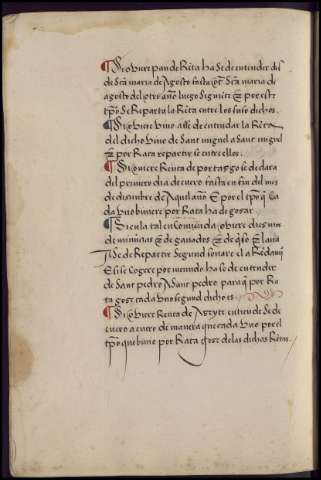 ¶ Si ouiere pan de Rēta ha se de entender des
de Sctā maria de Agosto fasta otͣ Scta maria de
agosto del otro año luego Siguiēte τ por este
tpo Se Reparta la Rēta entre los suso dichos.
¶ Si ouiere vino a se de entender la Rēta
del dicho vino de Sant miguel a Sant miguel
τ por Rata repartir se entre ellos.
¶ Si ouiere Renta de portazgo se declara
del primero dia de enero fasta en fin del mes
de diziembre de Aquel año E por el tpo q̄ ca
da vno biuiere por Rata ha de gozar
¶ Si en la tal encomienda ouiere diezmos
de minucias τ de ganados τ de queso τ lana
Se de Repartir Segund sonare el a Rēdamiēto
E si se Cogere por menudo ha se de entender
de Sant pedro A Sant pedro para q̄ por Ra
ta goze cada vno segund dicho es
¶ Si ouiere Renta de Azeyte entiendese de
enero a enero de manera que cada vno por el
tpo que biuiere por Rata goze de las dichas Rētas